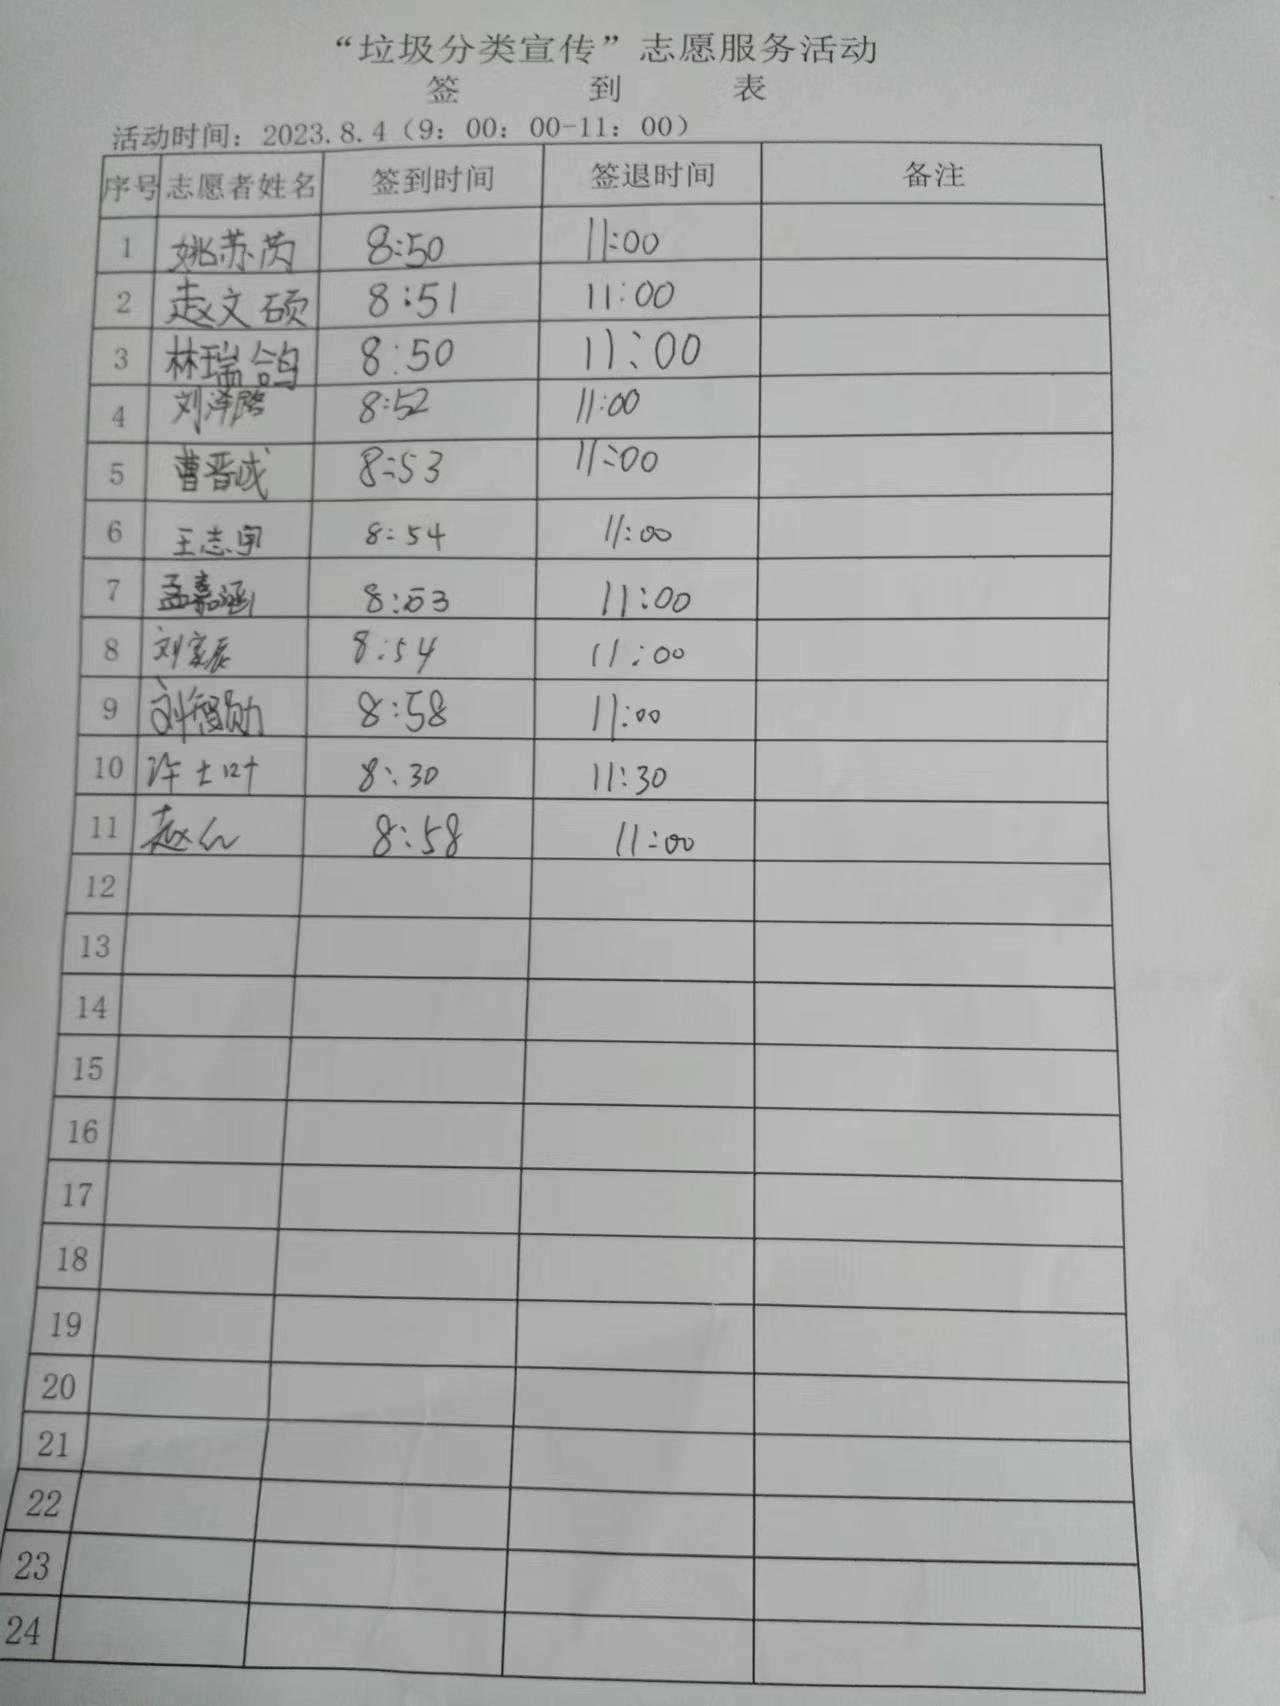 “垃圾分类宣传”志愿服务活动
签 到 表
活动时间：2023.8.4（9：00：00-11：00）
序号 志愿者姓名 签到时间 签退时间 备注
1 姚苏芮 8:50 11:00
2 赵文硕 8:51 11:00
3 林瑞鸽 8:50 11:00
4 刘泽 8:52 11:00
5 曹晋诚 8:53 11:00
6 王志宇 8:54 11:00
7 孟嘉涵 8:53 11:00
8 刘家辰 8:54 11:00
9 刘智勋 8:58 11:00
10 许士叶 8:30 11:30
11 赵 8:58 11:00
12
13
14
15
16
17
18
19
20
21
22
23
24